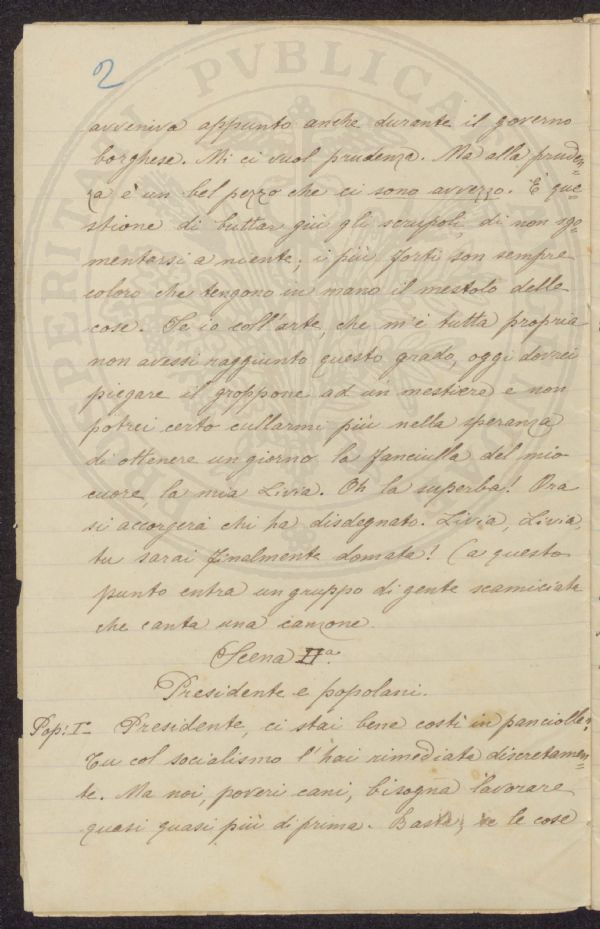 2
avveniva appunto anche durante il governo
borghese. Mi ci vuol prudenza. Ma alla pruden=
za è un bel pezzo che ci sono avvezzo. È que=
stione di buttar giù gli scrupoli, di non sgo=
mentarsi a niente; i più forti son sempre
coloro che tengono in mano il mestolo delle
cose. Se io coll'arte, che m'è tutta propria
non avessi raggiunto questo grado, oggi dovrei
piegare il groppone ad un mestiere e non
potrei certo cullarmi più nella speranza
di ottenere un giorno la fanciulla del mio
cuore, la mia Livia. Oh la superba! Ora
si accorgerà chi ha disdegnato. Livia, Livia,
tu sarai finalmente domata! (a questo
punto entra un gruppo di gente scamiciata
che canta una canzone.
Scena IIa.
Presidente e popolani.
Pop: I° Presidente, ci stai bene costì in panciolle?
Tu col socialismo l'hai rimediata discretamen=
te. Ma noi, poveri cani, bisogna lavorare
quasi quasi più di prima. Basta, se le cose
PVBLICA